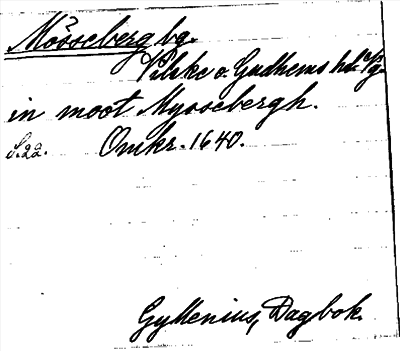 Mösseberg bg.
Vilske o. Gudhems hd. Vg.
in moot Myssebergh.
S. 22. Omkr. 1640.
Gyllenius, Dagbok.